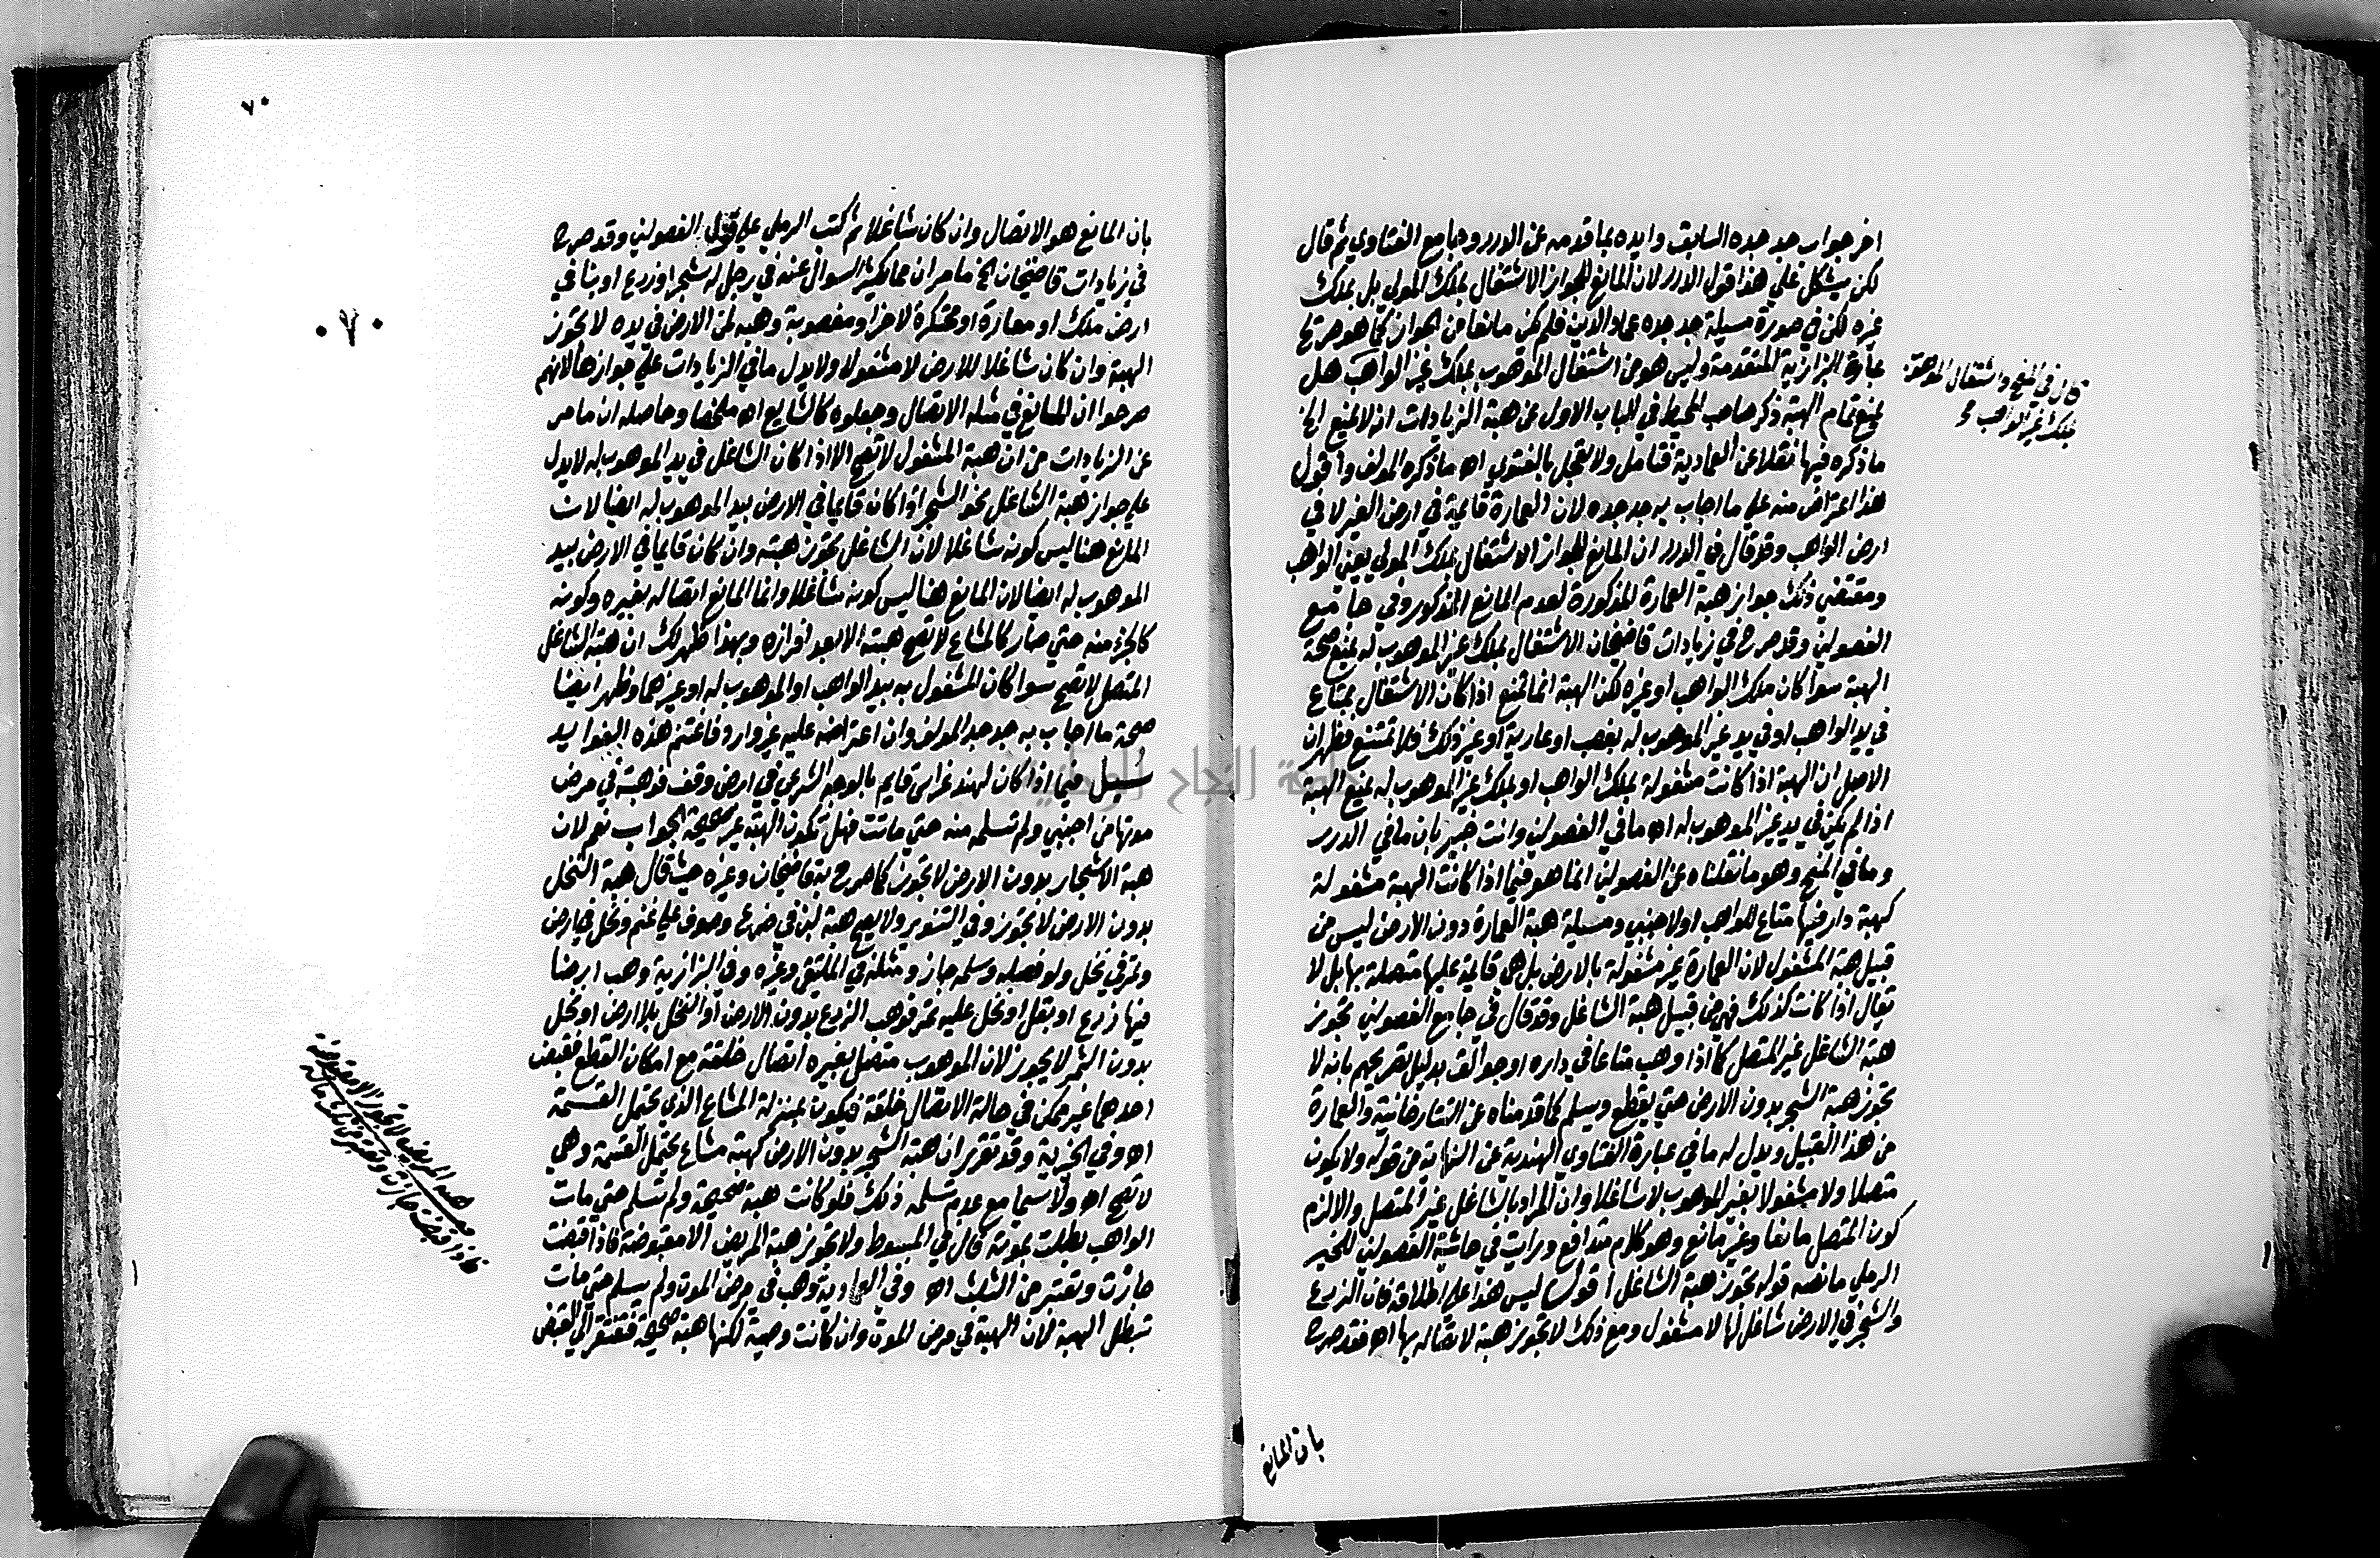 اخر جواب جد جده السابق وايده بما قدمه عن الدرر وجامع الفتاوي ثم قال
لكن يشكل علي هذا قول الدرر لان المانع للجواز الاشتغال بملك المولي بل بملك
غيره لكن في صورة مسيلة جد جده عماد الدين فلم يكن مانعا من الجواز كما هو صريح
عبارة البزازية المتقدمة وليس هو من اشتغال الموهوب بملك غير الواهب هل
يمنع تمام الهبة ذكر صاحب المحيط في الباب الاول من هبة الزيادات انه لا يمنع الخ
ما ذكره فيها نقلا عن العمادية فتامل ولا تعجل بالفتوي اه ما ذكره المولف واقول
هذا اعتراض منه علي ما اجاب به جد جده لان العمارة قايمة في ارض الغير لا في
ارض الواهب وقد قال في الدرر ان المانع للجواز الاشتغال بملك المولي يعني الواهب
ومقتضي ذلك جواز هبة العمارة المذكورة لعدم المانع المذكور وفي جامع
الفصولين وقد صرح في زيادات قاضيخان الاشتغال بملك غير الموهوب له يمنع صحة
الهبة سوا كان ملك الواهب او غيره لكن الهبة انما تمنع اذا كان الاشتغال بمتاع
في يد الواهب او في يد غير الموهوب له بغصب او عارية او غير ذلك فلا تمتنع فظهر ان
الاصل ان الهبة اذا كانت مشغولة بملك الواهب او بملك غير الموهوب له يمنع الهبة
اذا لم يكن في يد غير الموهوب له اه ما في الفصولين وانت خبير بان ما في الدرر
وما في المنح وهو ما نقلناه عن الفصولين انما هو فيما اذا كانت الهبة مشغولة
كهبة دار فيها متاع للواهب او لاجنبي ومسيلة هبة العمارة دون الارض ليس من
قبيل هبة المشغول لان العمارة غير مشغولة بالارض بل هي قايمة عليها متصلة بها بل لا
يقال اذا كانت كذلك فهي من قبيل هبة الشاغل وقد قال في جامع الفصولين تجوز
هبة الشاغل غير المتصل كما اذا وهب متاعا في داره او جوالق بدليل تصريحهم بانه لا
تجوز هبة الشجر بدون الارض حتي يقطع ويسلم كما قدمناه عن التتارخانية والعمارة
من هذا القبيل ويدل له ما في عبارة الفتاوي الهندية عن النهاية من قوله ولا يكون
متصلا ولا مشغولا بغير الموهوب لا شاغلا وان المراد بالشاغل غير المتصل والا لزم
كون المتصل مانعا وغير مانع وهو كلام متدافع ورايت في حاشية الفصولين للخير
الرملي ما نصه قوله تجوز هبة الشاغل اقول ليس هذا علي اطلاقه فان الزرع
والشجر في الارض شاغل لها لا مشغول ومع ذلك لا تجوز هبة لاتصاله بها اه فقد صرح
قال في المنح واشتغال الموهوب
بملك غير الواهب
بان المانع
٧٠
٧٠
بان المانع هو الاتصال وان كان شاغلا ثم كتب الرملي علي قول الفصولين وقد صرح
في زيادات قاضيخان الخ ما مر ان مما يكثر السوال عنه في رجل له شجر او زرع او بنا في
ارض ملك او معارة او محتكرة لاخر او مغصوبة وهبه لمن الارض في يده لا تجوز
الهبة وان كان شاغلا للارض لا مشغولا ولا يدل ما في الزيادات علي جوازها لانهم
صرحوا ان المانع في مثله الاتصال وجعلوه كالشايع اه ملخصا وحاصله ان ما مر
عن الزيادات من ان هبة المشغول لا تصح الا اذا كان الشاغل في يد الموهوب له لا يدل
علي جواز هبة الشاغل نحو الشجر اذا كان قايما في الارض بيد الموهوب له ايضا لان
المانع هنا ليس كونه شاغلا لان الشاغل تجوز هبته وان كان قايما في الارض بيد
الموهوب له ايضا لان المانع هنا ليس كونه شاغلا وانما المانع اتصاله بغيره وكونه
كالجزء منه حتي صار كالمشاع لا تصح هبته الا بعد افرازه وبهذا ظهر لك ان هبة الشاغل
المتصل لا تصح سوا كان المشغول به بيد الواهب او الموهوب له او غيرهما وظهر ايضا
صحة ما اجاب به جد جد المولف وان اعتراضه عليه غير وارد فاغتنم هذه الفوايد
سيل فيما اذا كان لهند غراس قايم بالوجه الشرعي في ارض وقف فوهبته في مرض
موتها من اجنبي ولم تسلمه منه حتي ماتت فهل تكون الهبة غير صحيحة الجواب نعم لان
هبة الاشجار بدون الارض لا تجوز كما صرح به قاضيخان وغيره حيث قال هبة النخل
بدون الارض لا تجوز وفي التنوير ولا يصح هبة لبن في ضرع وصوف علي غنم ونخل في ارض
وتمر في نخل ولو فصله وسلمه جاز ومثله في الملتقي وغيره وفي البزازية وهب ارضا
فيها زرع او بقل او نخل عليه تمر فوهب الزرع بدون الارض او النخل بلا ارض او نخل
بدون الثمر لا يجوز لان الموهوب متصل بغيره اتصال خلقة مع امكان القطع فقبض
احدهما غير ممكن في حالة الاتصال خلقة فيكون بمنزلة المشاع الذي يحتمل القسمة
اه وفي الخيرية وقد تقرر ان هبة الشجر بدون الارض كهبة مشاع يحتمل القسمة وهي
لا تصح اه ولا سيما مع عدم تسلمه ذلك فلو كانت هبة صحيحة ولم تسلم حتي مات
الواهب بطلت بموته قال في المبسوط ولا تجوز هبة المريض الا مقبوضة فاذا قبضت
جازت وتعتبر من الثلث اه وفي العمادية وهب في مرض الموت ولم يسلم حتي مات
تبطل الهبة لان الهبة في مرض الموت وان كانت وصية لكنها هبة صحيحة فتفتقر الي القبض
هبة المريض لا تجوز الا مقبوضة
فاذا قبضت جازت وتعتبر من ثلث ماله
جامعة النجاح الوطنية